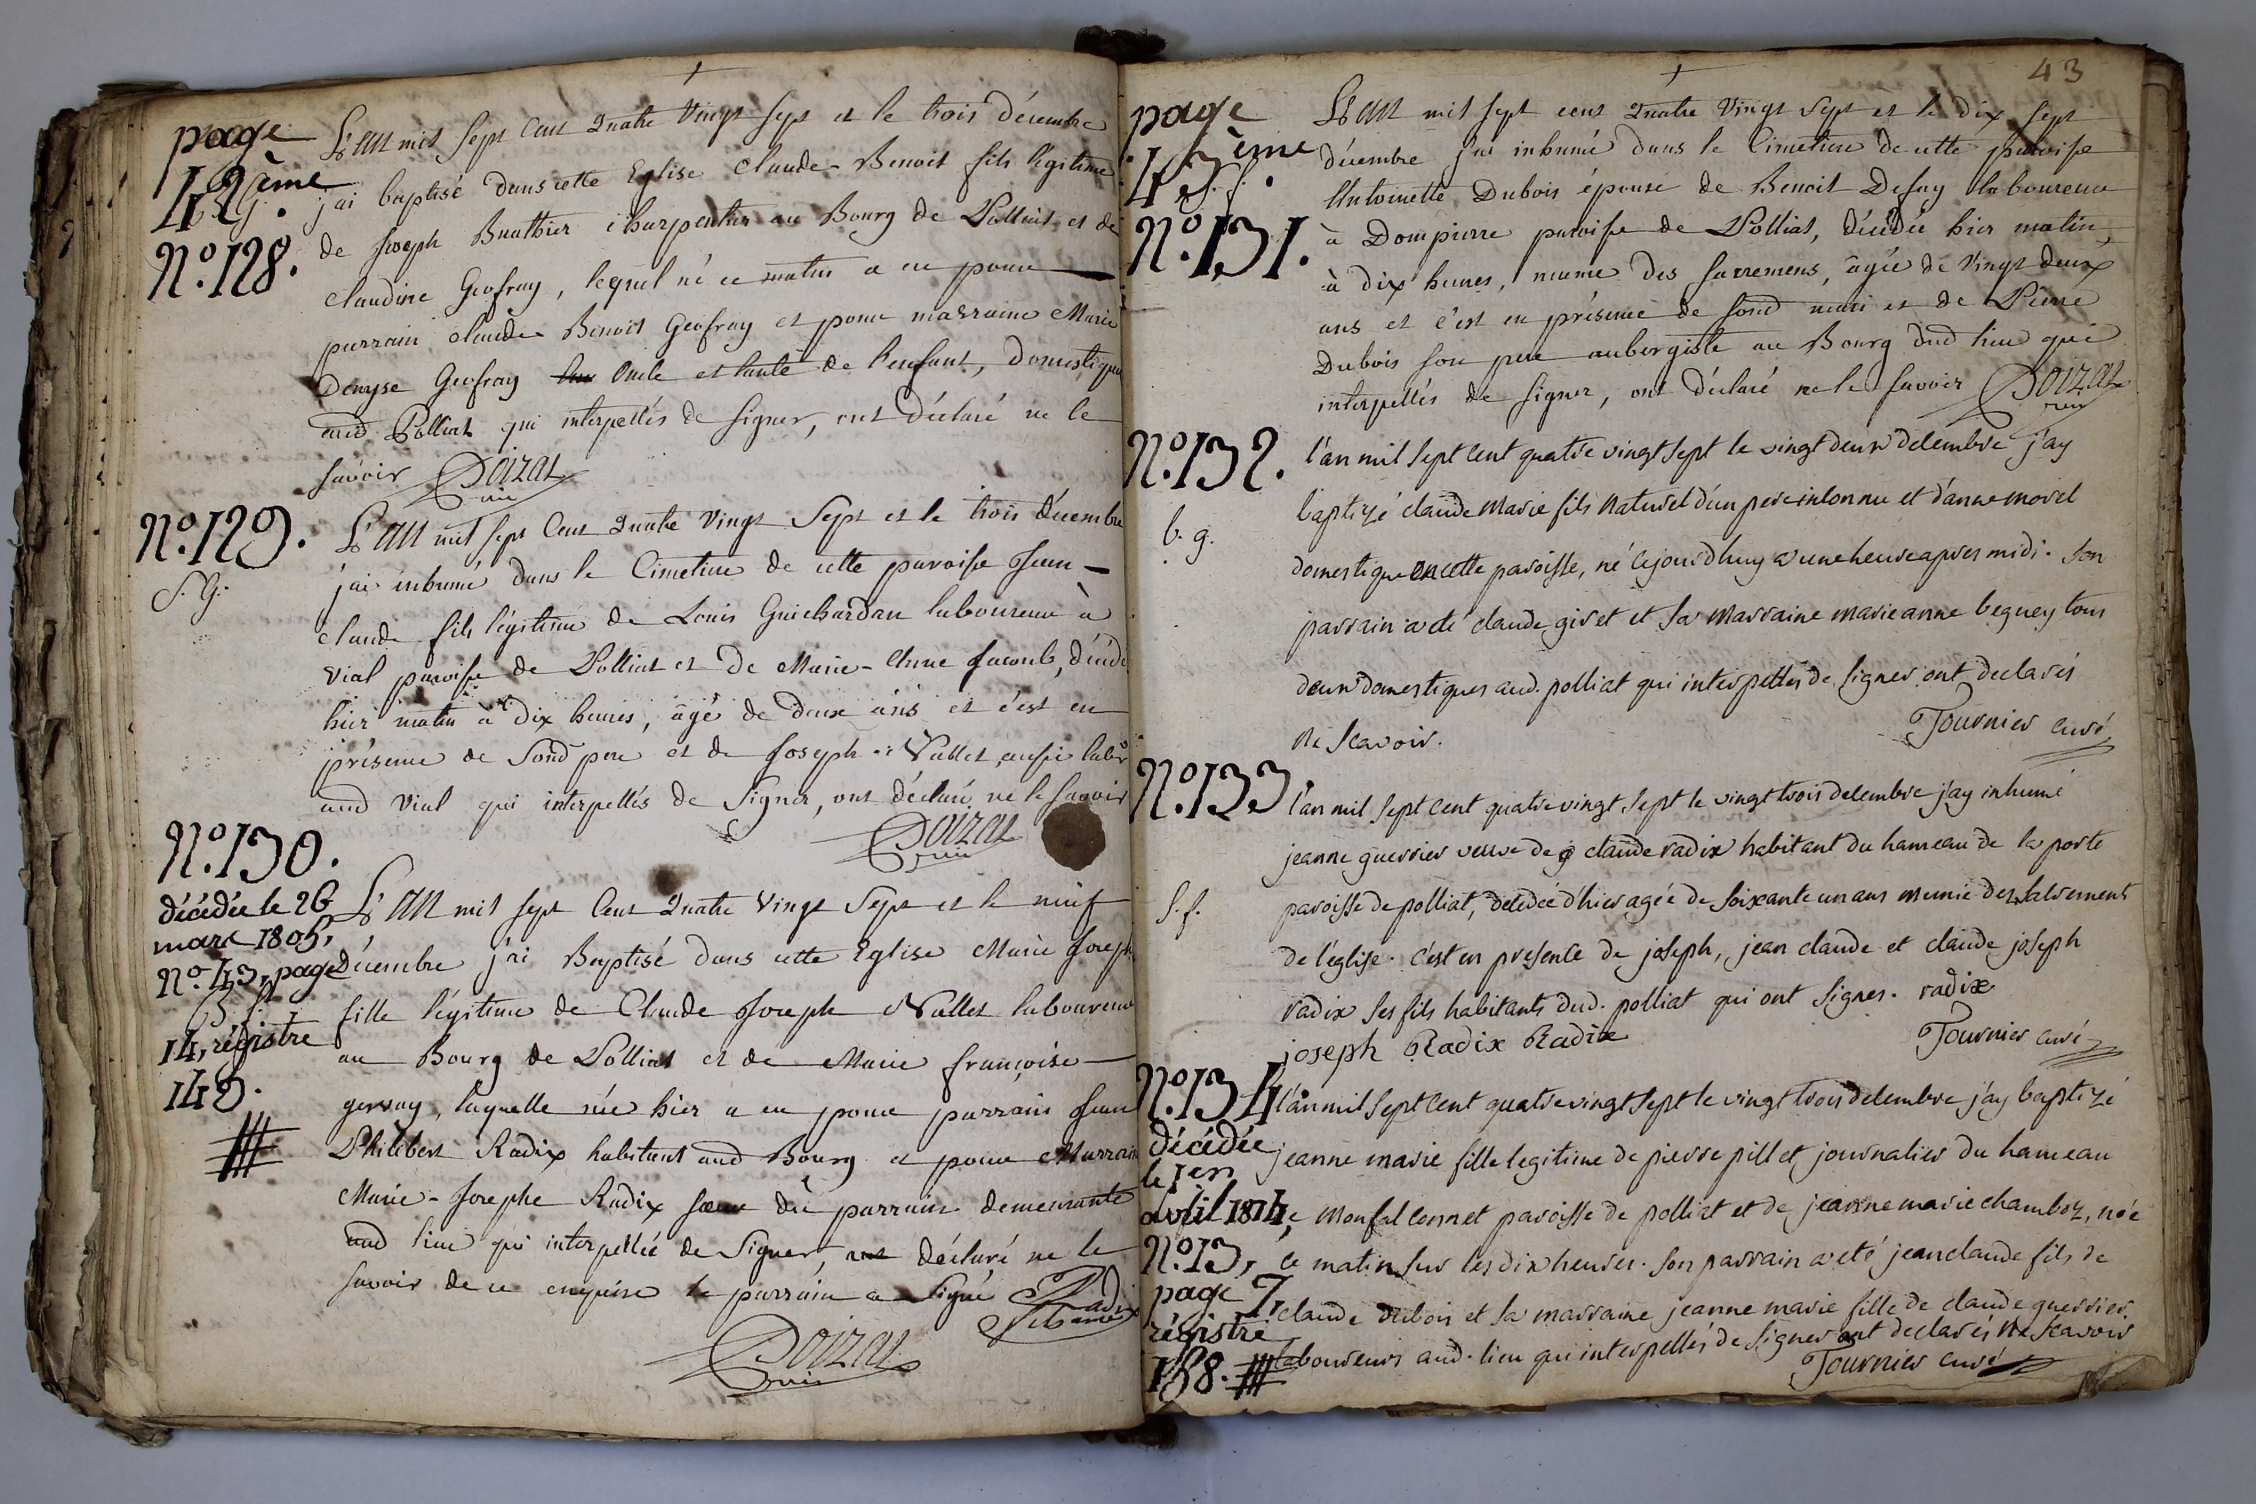 page
42ème
b. g.
N.° 128.
L'an mil sept cent quatre vingt sept et le trois décembre
j'ai baptisé dans cette Eglise Claude-Benoit fils légitime
de Joseph Buathier charpentier au Bourg de Polliat et de
Claudine Geofray, lequel né ce matin a eu pour
parrain Claude Benoit Geofray et pour marraine Marie
Denyse Geofray oncle et tante de l'enfant, domestiques
aud. Polliat qui interpellés de signer, ont déclaré ne le
savoir Doizat
N.° 129.
S. G.
L'an mil sept cent quatre vingt sept et le trois décembre
j'ai inhumé dans le Cimetiere de cette paroisse Jean-
Claude fils légitime de Louis Guichardan laboureur à
Vial paroisse de Polliat et de Marie-Anne Jacomb, décédé
hier matin à dix heures, âgé de deux ans et c'est en
présence de Sond. pere et de Joseph Vallet aussi labr
aud Vial qui interpellés de Signer, ont déclaré ne le savoir
Doizat
N.° 130.
décédée le 26
mars 1805,
N° 43, page
14, régistre
149.
L'an mil sept cent quatre vingt sept et le neuf
décembre j'ai Baptisé dans cette Eglise Marie Joseph
fille légitime de Claude Joseph Vallet laboureur
au Bourg de Polliat et de Marie françoise
gervay, laquelle née hier a eu pour parrain Jean
Philibert Radix habitant aud Bourg et pour Marraine
Marie-Josephe Radix sœur du parrain demeurante
aud lieu qui interpellée de Signer, a déclaré ne le
savoir de ce enquise le parrain a Signé Radix
Doizat
43
page
43ème
S. f.
N.° 131.
L'an mil sept cent quatre vingt sept et le dix sept
décembre j'ai inhumé dans le Cimetiere de cette paroisse
Antoinette Dubois épouse de Benoit Defay laboureur
à Dompierre paroisse de Polliat, décédée hier matin
à dix heures, munie des sacremens, âgée de vingt deux
ans et c'est en présence de sond mari et de Pierre
Dubois son pere aubergiste au Bourg dud lieu qui
interpellés de signer, ont déclaré ne le savoir Doizat
N.° 132.
b. g.
l'an mil sept cent quatre vingt sept le vingt deux decembre j'ay
baptizé claude marie fils naturel d'un pere inconnu et d'anne morel
domestique en cette paroisse, né cejourd'huy a une heure apres midi. son
parrain a eté claude giret et sa marraine marie anne beguey tous
deux domestiques aud. polliat qui interpellés de signer ont declarés
ne scavoir.
Tournier curé
N.° 133
S. f.
l'an mil sept cent quatre vingt sept le vingt trois decembre j'ay inhumé
jeanne guerrier veuve de claude radix habitant du hameau de la porte
paroisse de polliat, decedée d'hier agée de soixante un ans munie des sacrements
de l'eglise. c'est en presence de joseph, jean claude et claude joseph
radix ses fils habitants dud. polliat qui ont signes. radix
joseph Radix Radix
Tournier curé
N.° 134
décédée
le 1er
avril 1814,
N.° 13,
page 7,
régistre
158.
l'an mil sept cent quatre vingt sept le vingt trois decembre j'ay baptizé
jeanne marie fille legitime de pierre pillet journalier du hameau
de monfalconnet paroisse de polliat et de jeanne marie chamboz, née
ce matin sur les dix heures. son parrain a eté jean claude fils de
claude dubois et sa marraine jeanne marie fille de claude guerrier
laboureurs aud. lieu qui interpellés de signer ont declarés ne scavoir
Tournier curé